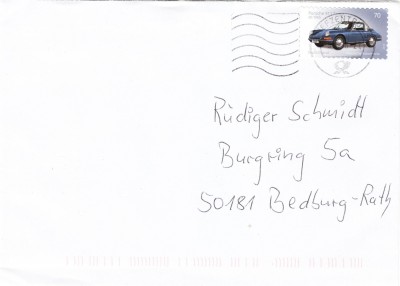 70
Rüdiger Schmidt
Burgring 5a
50181 Bedburg-Rath